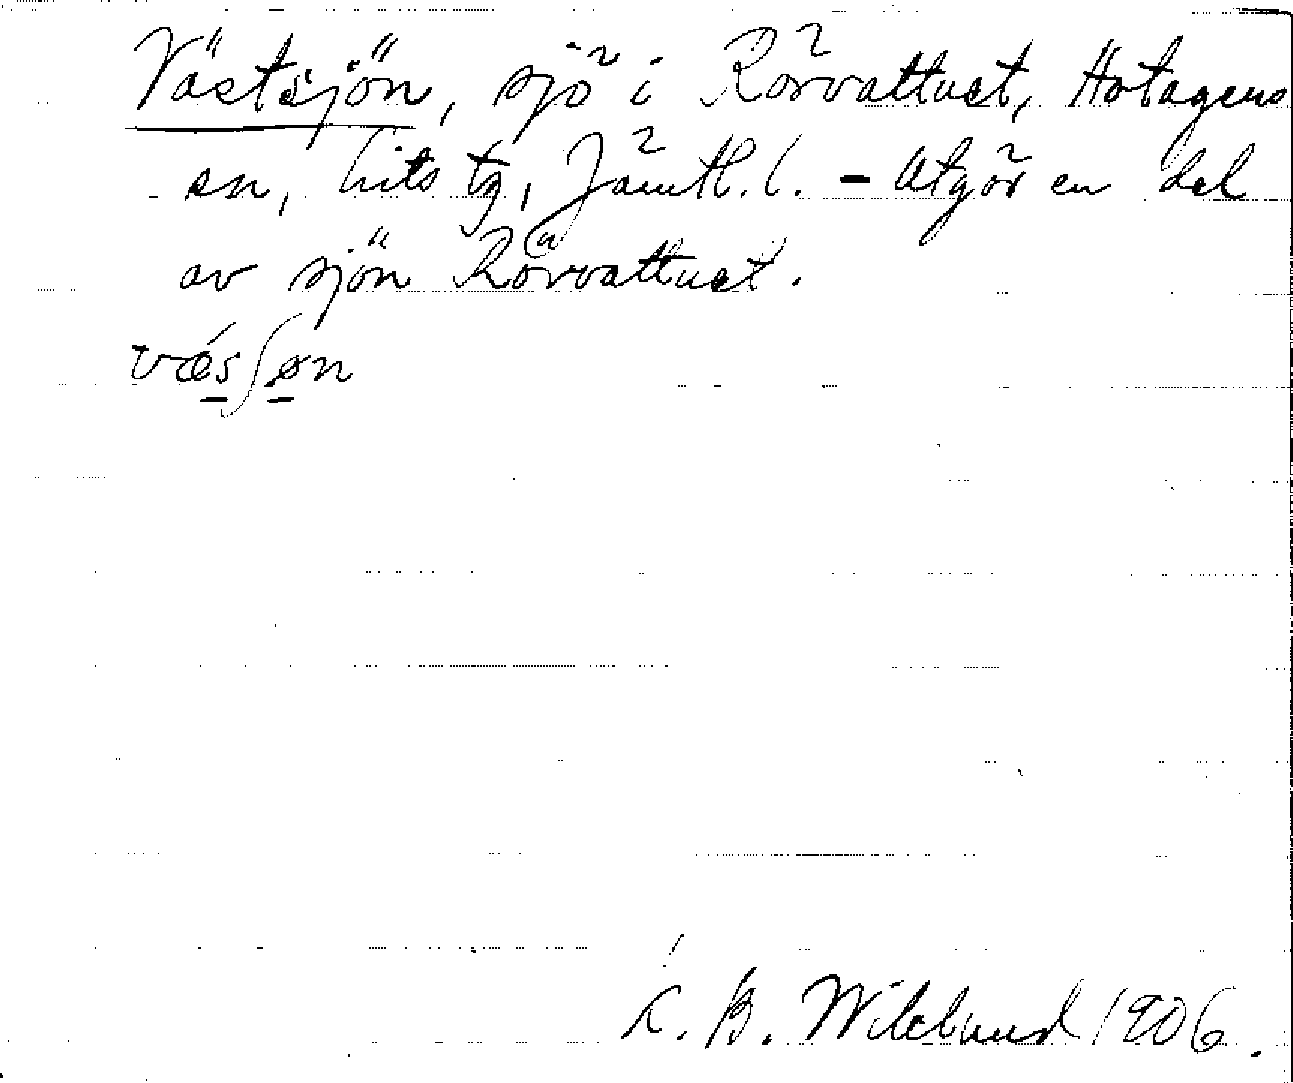 Västsjön, sjö i Rörvattnet, Hotagens
sn, Lits tg, Jämtl. l. - Utgör en del
av sjön Rörvattnet.
vǽsʃøn
K. B. Wiklund 1906.